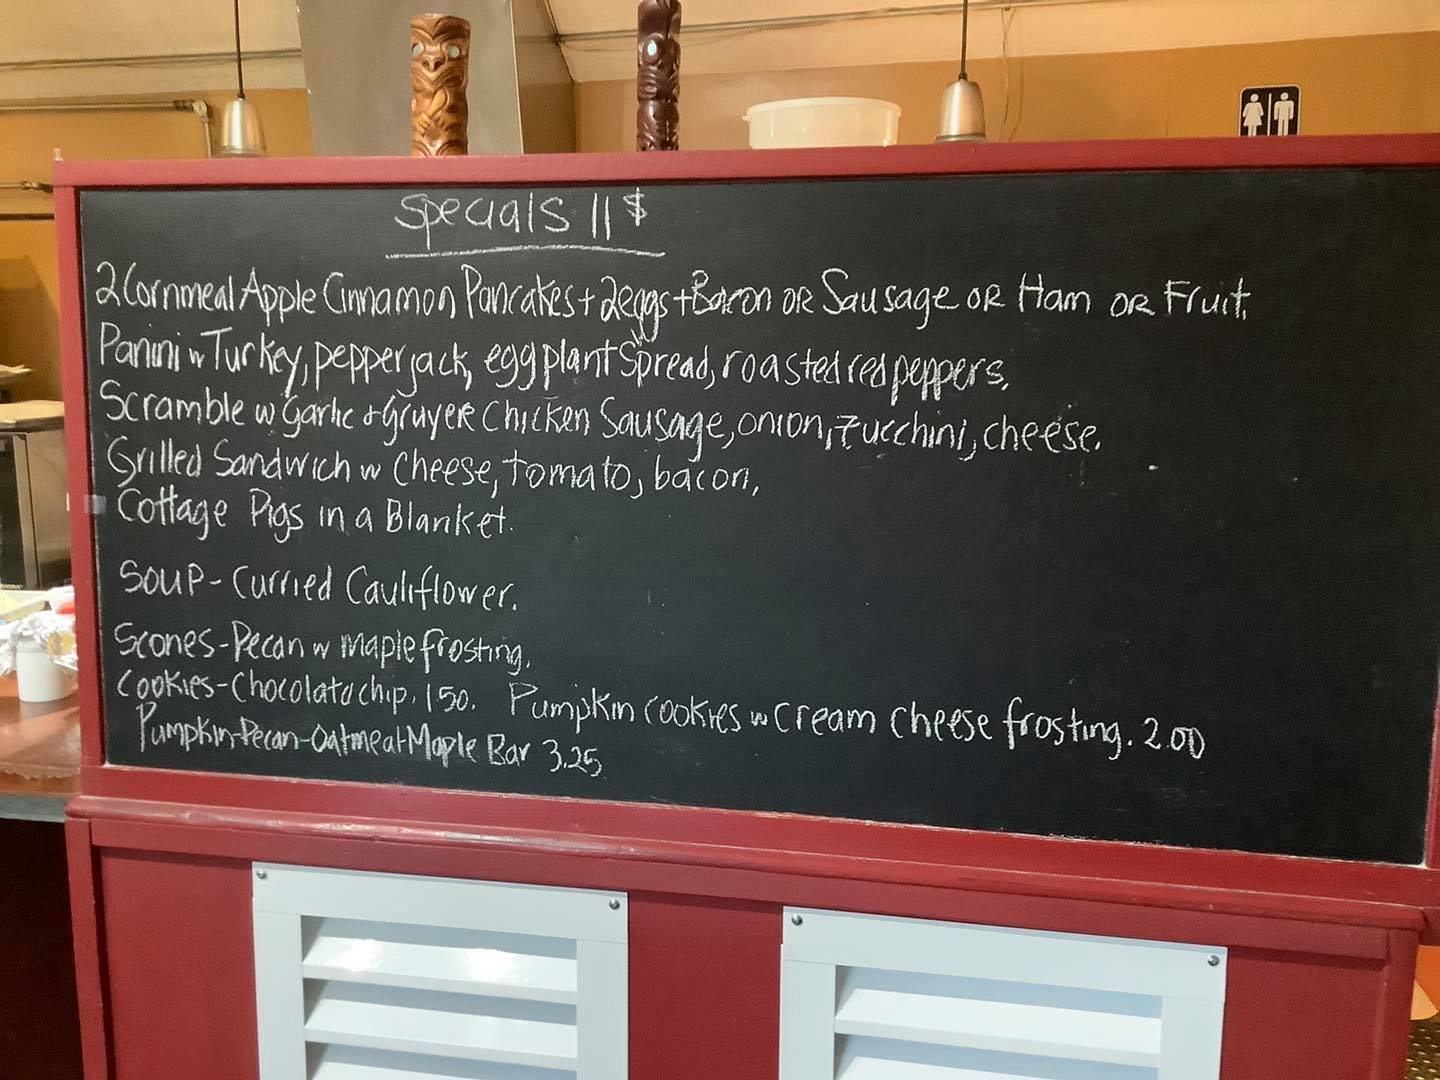 Specials 11$
2 Cornmeal Apple Cinnamon Pancakes + 2 eggs + Bacon OR Sausage OR Ham OR Fruit.
Panini w Turkey, pepperjack, eggplant Spread, roasted red peppers.
Scramble w garlic + gruyere Chicken Sausage, onion, zucchini, cheese.
Grilled Sandwich w Cheese, tomato, bacon,
Cottage Pigs in a Blanket.
SOUP - Curried Cauliflower.
Scones - Pecan w maple frosting.
Cookies - Chocolatochip. 150. Pumpkin cookies w cream cheese frosting. 2.00
Pumpkin-Pecan-Oatmeal-Maple Bar 3.25